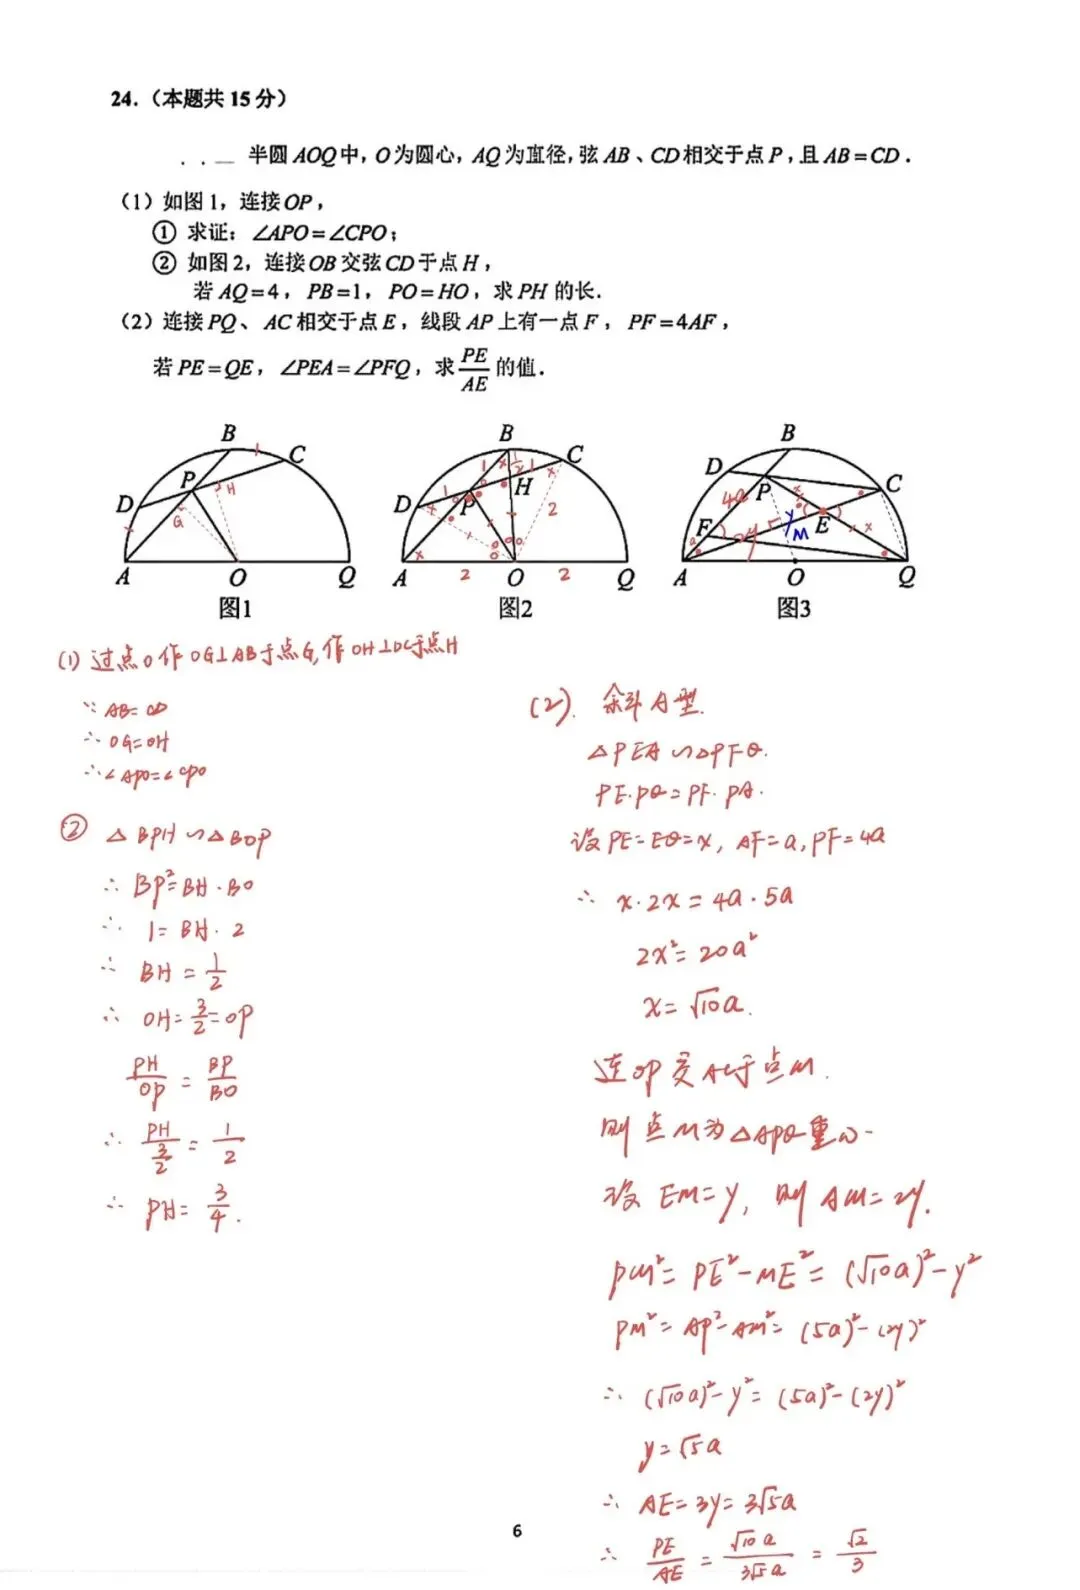 24.（本题共 15 分）
半圆 AOQ 中，O 为圆心，AQ 为直径，弦 AB、CD 相交于点 P，且 AB=CD．
（1）如图 1，连接 OP，
① 求证：∠APO=∠CPO；
② 如图 2，连接 OB 交弦 CD 于点 H，
若 AQ=4，PB=1，PO=HO，求 PH 的长．
（2）连接 PQ、AC 相交于点 E，线段 AP 上有一点 F，PF=4AF，
若 PE=QE，∠PEA=∠PFQ，求 PE/AE 的值．
B 1 C
P H
D G
A O Q
图1
B C
1 x 1/2 1 x
D 1 P H
x 2
A x 2 O 2 Q
图2
B
D P C
4a x
F y E x
a 2y M
A O Q
图3
(1) 过点O作OG⊥AB于点G,作OH⊥DC于点H
∵ AB=CD
∴ OG=OH
∴ ∠APO=∠CPO
② △BPH∽△BOP
∴ BP²=BH·BO
∴ 1=BH·2
∴ BH=1/2
∴ OH=3/2=OP
PH/OP=BP/BO
∴ PH/(3/2)=1/2
∴ PH=3/4.
(2). 斜A型.
△PEA∽△PFQ.
PE·PQ=PF·PA.
设PE=EQ=x, AF=a, PF=4a
∴ x·2x=4a·5a
2x²=20a²
x=√10a.
连OP交AC于点M.
则点M为△APQ重心.
设EM=y, 则AM=2y.
PM²=PE²-ME²=(√10a)²-y²
PM²=AP²-AM²=(5a)²-(2y)²
∴ (√10a)²-y²=(5a)²-(2y)²
y=√5a
∴ AE=3y=3√5a
∴ PE/AE=√10a/3√5a=√2/3
6